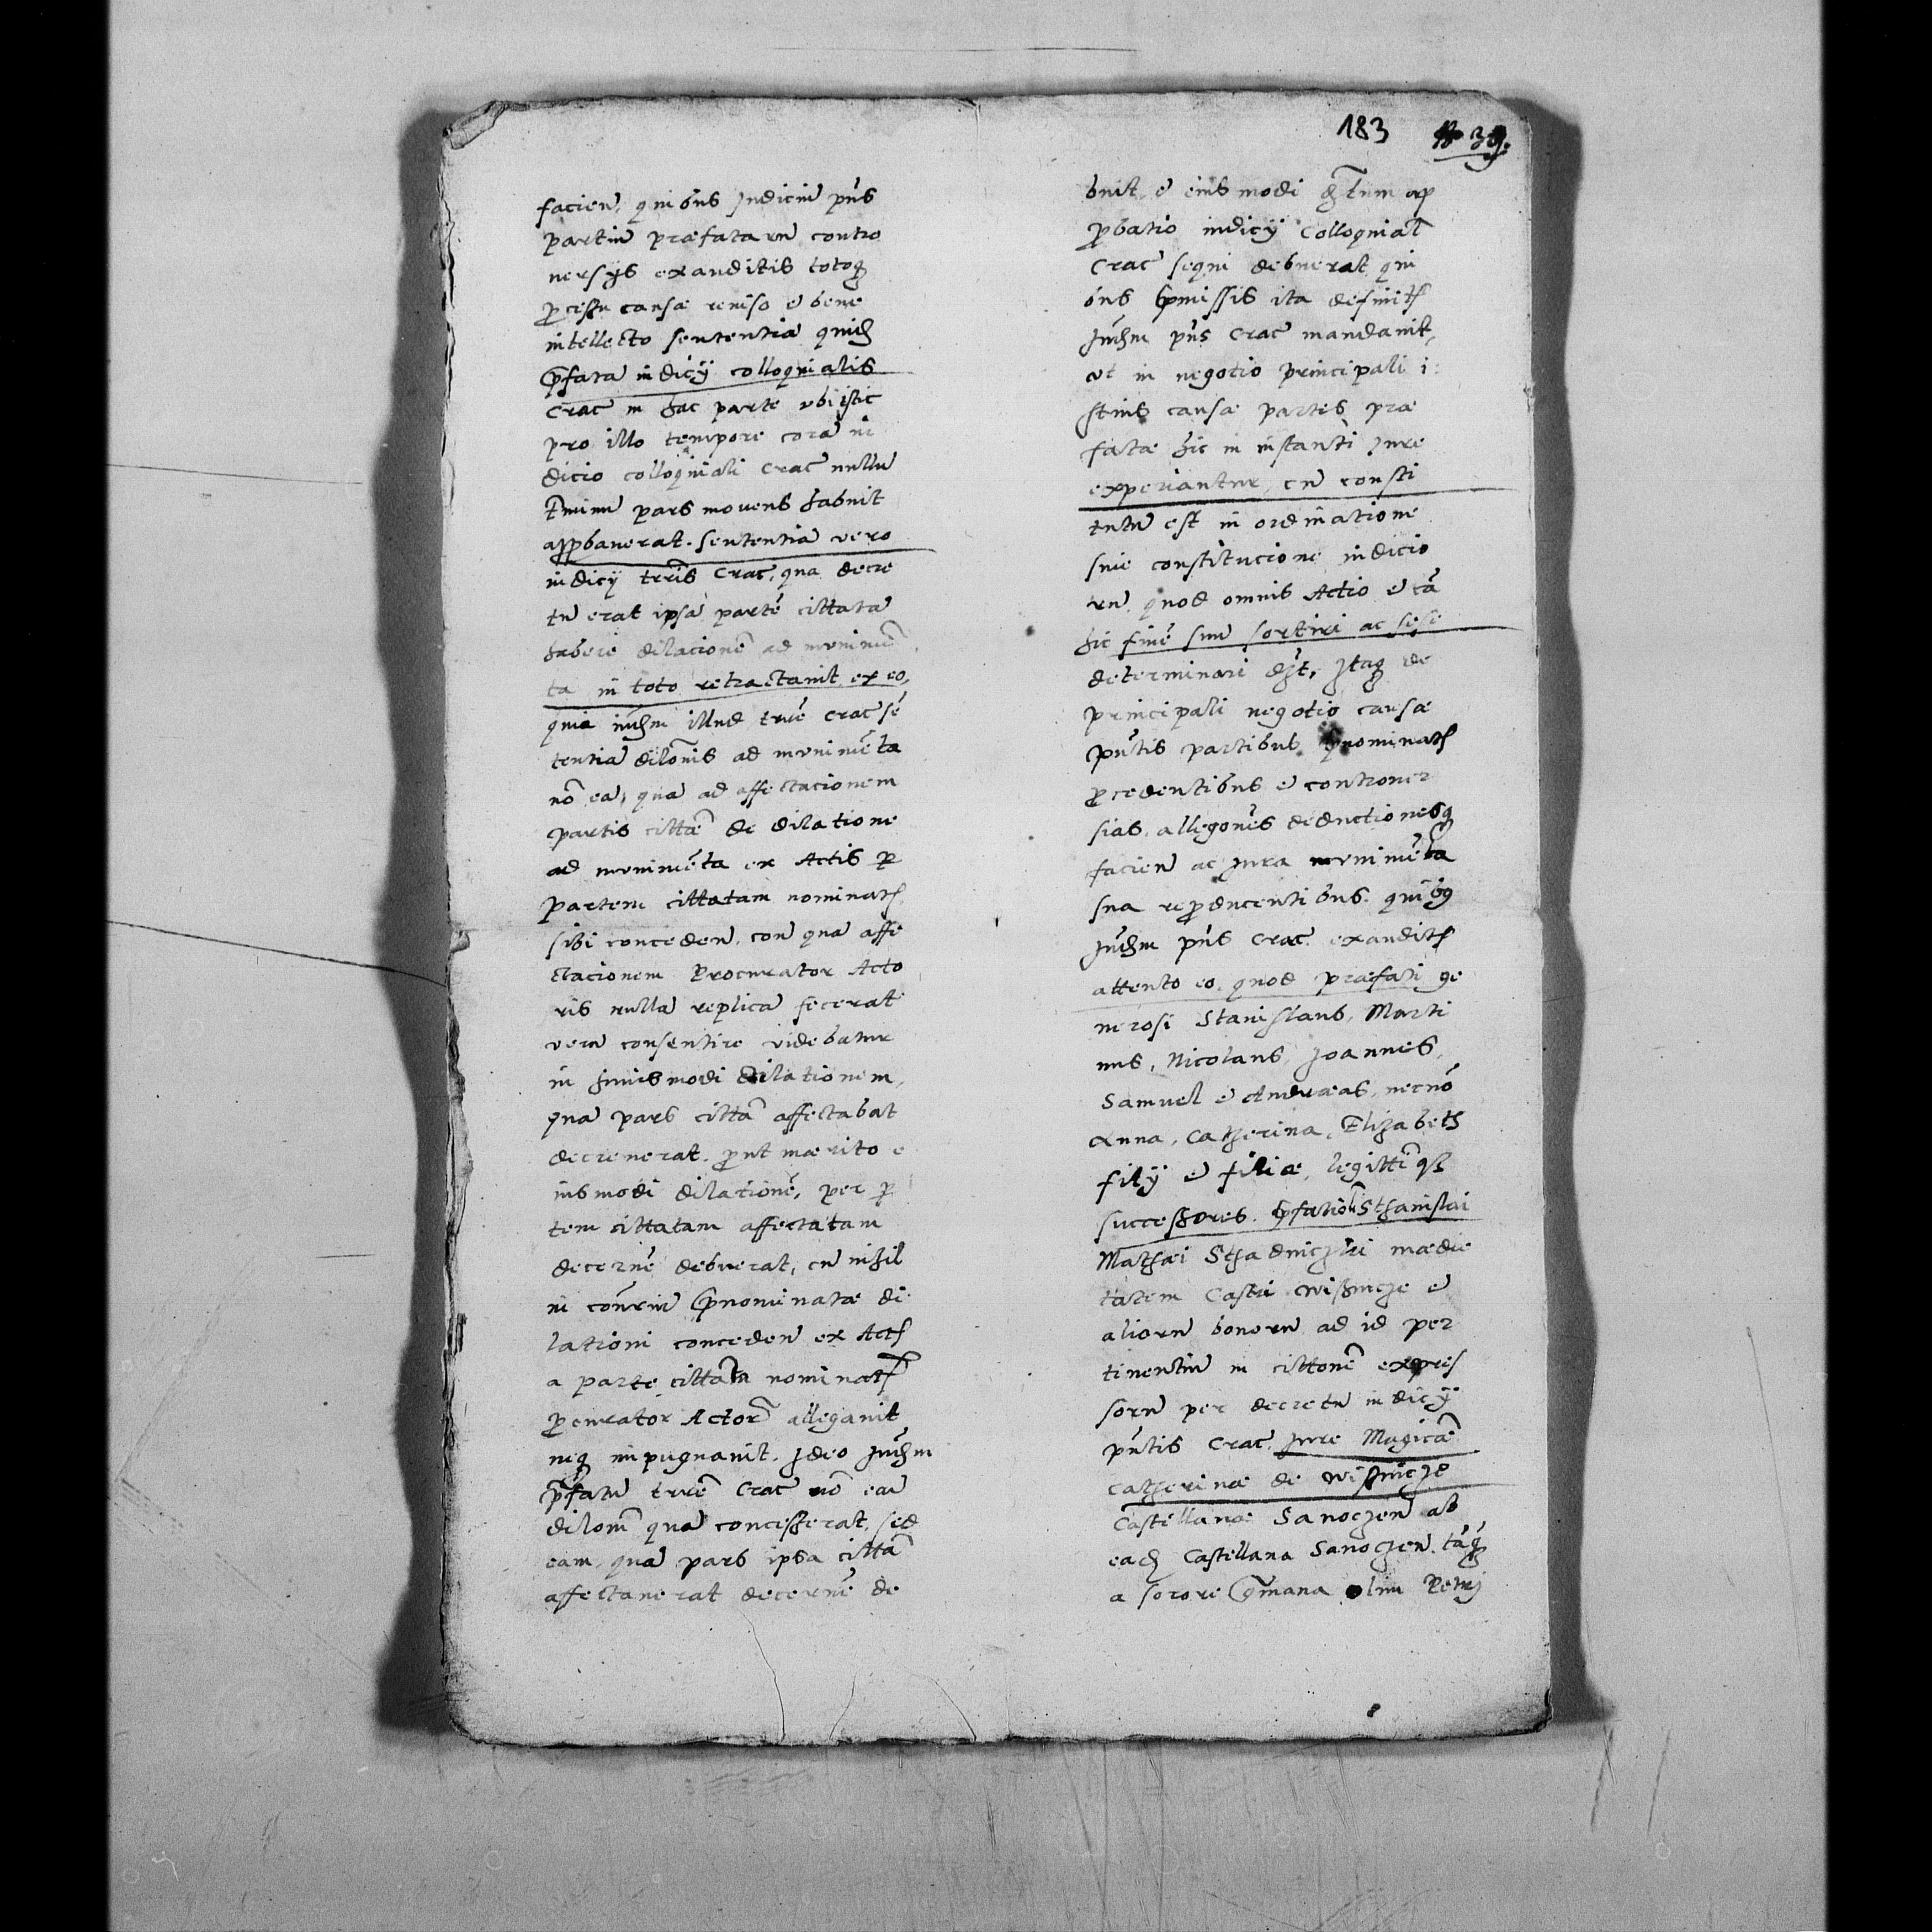 183 39.
facien, quibus Judiciũ pñs
partiũ præfatarũ contro
uersijs exauditis totoq
pcessu causæ reuiso et bene
intellecto sententiã quidẽ
pfatã iudicij colloquialis
Crac in hac parte vbi istic
pro illo tempore corã iu
dicio colloquiali Crac nullũ
tminũ pars mouens habuit
appbauerat. Sententiã vero
iudicij trris Crac, quã decre
tũ erat ipsã partẽ cittatã
habere dilacionẽ ad munimẽ
ta in toto retractauit ex eo,
quia iudm illud trrẽ Crac sẽ
tentiã dilonis ad munimẽta
nõ eã, quã ad affectacionem
partis cittæ de dilatione
ad munimẽta ex Actis p
partem cittatam nominatis
sibi conceden, con quã affe
ctacionem Procurator Acto
ris nullã replicã fecerat
verũ consentire videbatur
in huiusmodi dilationem,
quã pars cittã affectabat
decreuerat. put mærito e
iusmodi dilationẽ, per p
tem cittatam affectatam
decernẽ debuerat, cũ nihil
in conriũ pnominatæ di
lationi conceden ex Actis
a parte cittata nominatis
pcurator Actor allegauit
neq impugnauit. Ideo Judm
pfatũ trrẽ Crac nõ eam
dilom quã concesserat, sed
eam, quã pars ipsa cittã
affectauerat decernẽ de
buit, et eiusmodi dtum ap
pbatio iudicij Colloquial
Crac sequi debuerat, qui
bus pmissis ita definitis
Judm pñs Crac mandauit,
vt in negotio principali i:
stius causæ partes præ
fatæ hic in instanti Jure
experiantur, cũ consti
tutũ est in ordinatione
siue constitucione iudicio
rũ, quod omnis Actio et cã
hic finẽ suũ sortiri ac sese
determinari dẽt, Itaq de
principali negotio causæ
pñtis partibus pnominatis
pcedentibus et controuer
sias, allegones deductionesq
facien ac Jura munimẽta
sua repducentibus. quibq
Judm pñs Crac. exauditis
attento eo, quod præfati ge
nerosi Stanislaus, Marti
nus, Nicolaus, Joannes,
Samuel et Andræas, necnõ
Anna, Catherina, Elizabeth
filij et filiæ, legittĩ qz
successores. pfation Sthanislai
Mathæi Sthadniczki mædie
tatem Castri Wisznicze et
aliorũ bonorũ ad id per
tinentiũ in cittonẽ expres
sorũ per decretũ iudicij
pñtis Crac. Jure Magicæ
Catherinæ de Wisznicze
Castellanæ Sanoczen ab
ead Castellana Sanoczen. tãq
a sorore gmana olim Petri